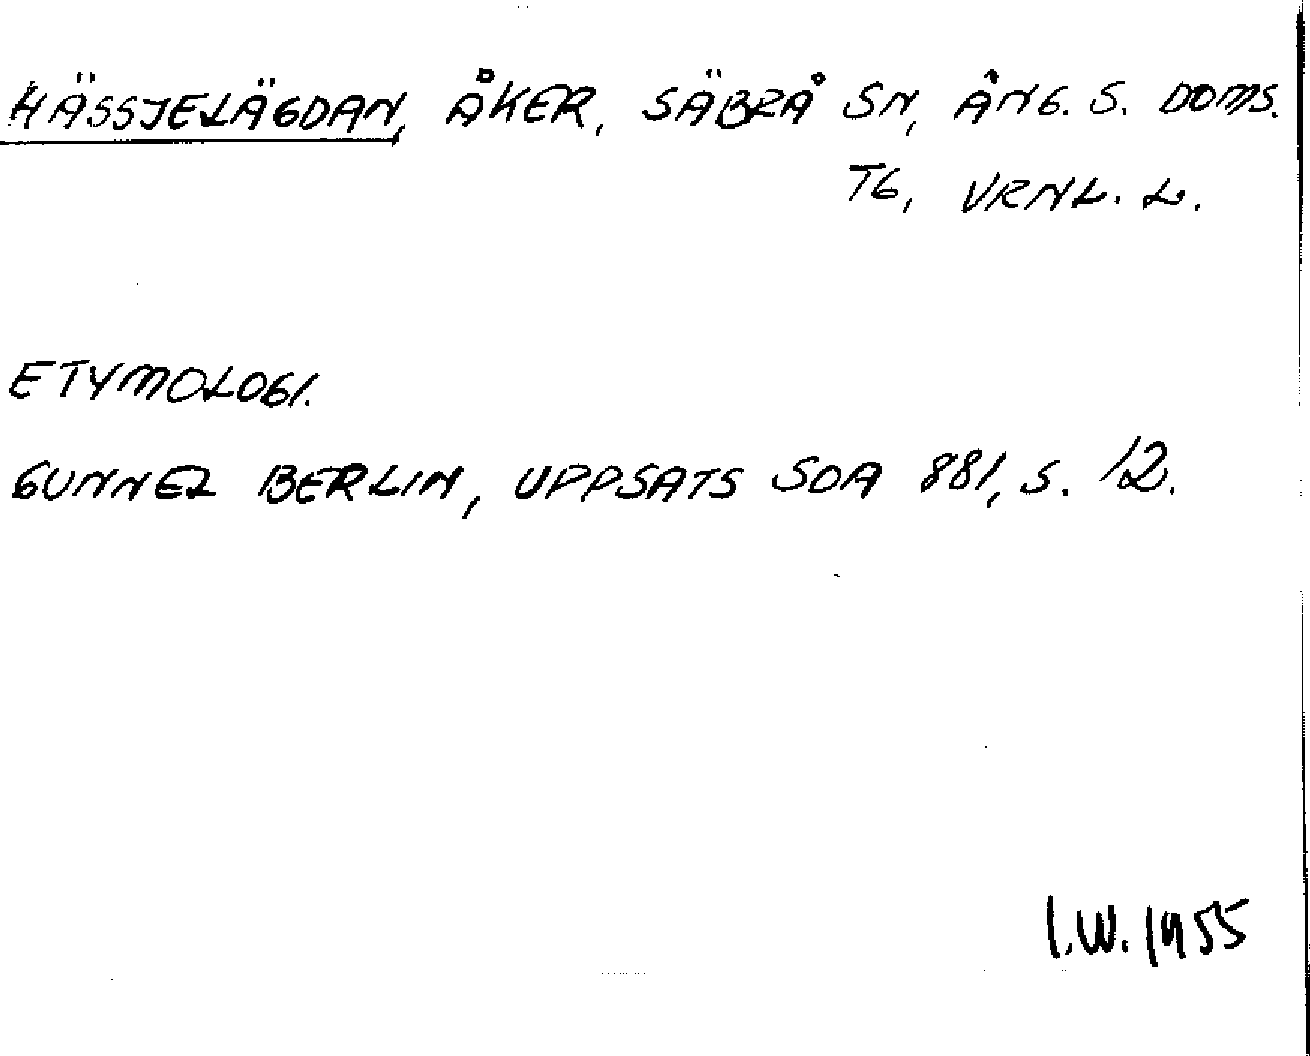 HÄSSJELÄGDAN, ÅKER, SÄBRÅ SN, ÅNG. S. DOMS.
TG, VRNL. L.
ETYMOLOGI.
GUNNEL BERLIN, UPPSATS SOA 881, S. 12.
I.W. 1955